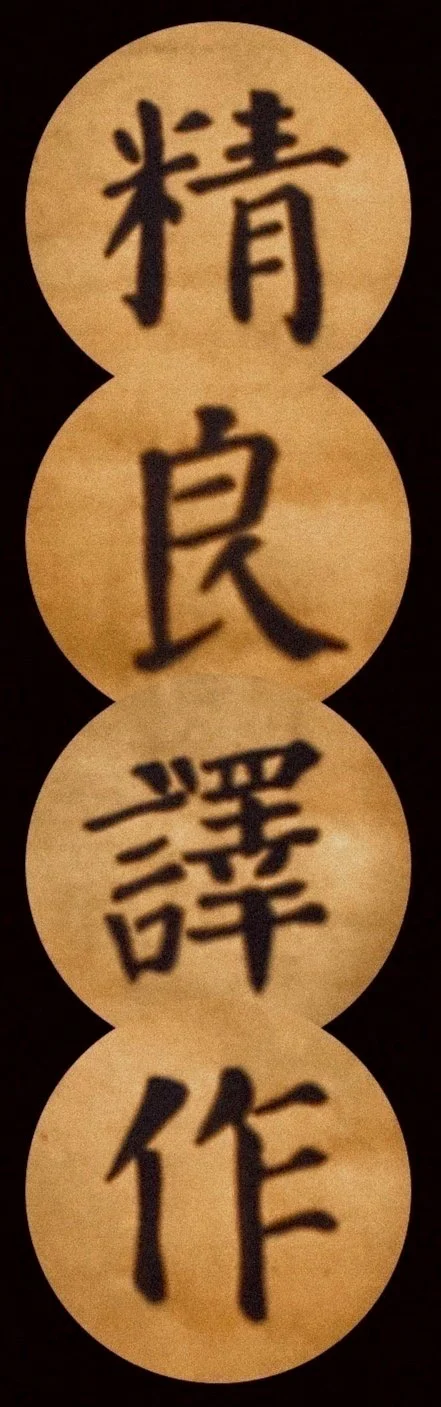 精良譯作